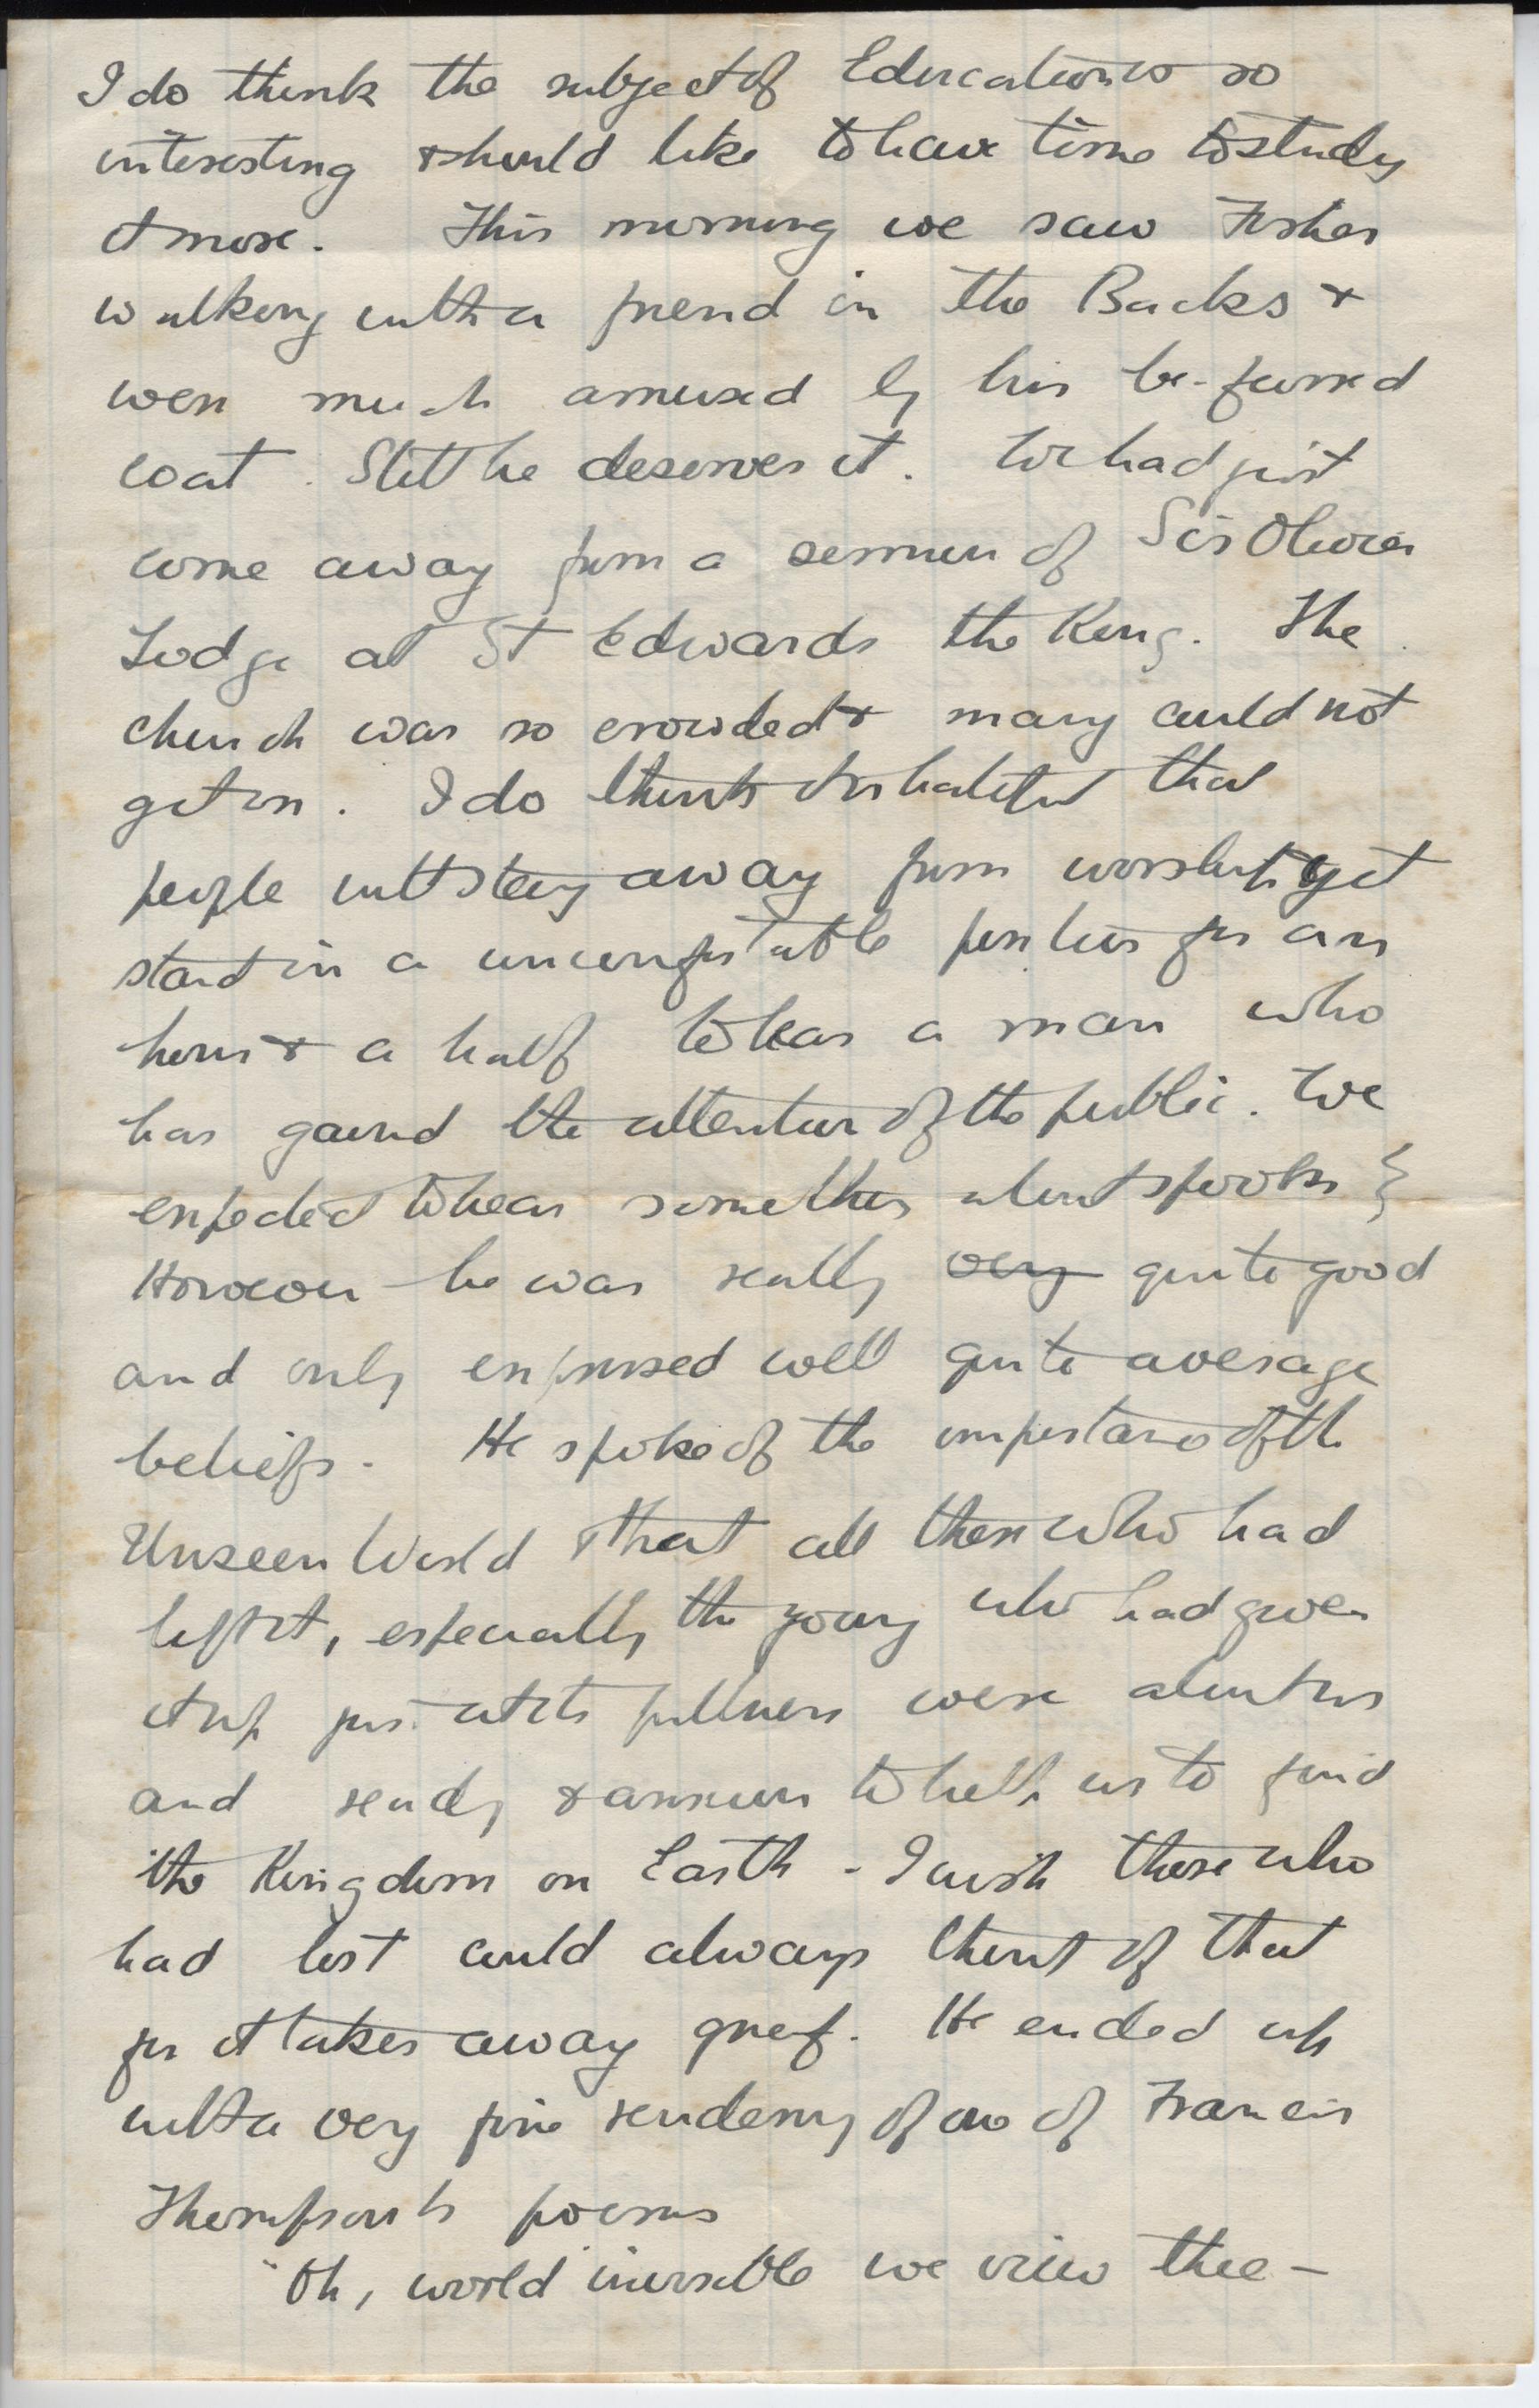 I do think the subject of Education is so
interesting & should like to have time to study
it more. This morning we saw Fisher
walking with a friend in the Backs &
were much amused by his be-furred
coat. Still he deserves it. We had just
come away from a sermon of Sir Oliver
Lodge at St Edwards the King. The
church was so crowded & many could not
get in. I do think it is hateful that
people will stay away from worship & yet
stand in a uncomfortable position for an
hour & a half to hear a man who
has gained the attention of the public. We
expected to hear something about spooks
However he was really very quite good
and only expressed well quite average
beliefs. He spoke of the importance of the
Unseen World & that all those who had
left it, especially the young who had given
it up just at its fullness were about us
and ready & anxious to help us to find
the Kingdom on Earth - I wish those who
had lost could always think of that
for it takes away grief. He ended up
with a very fine rendering of one of Francis
Thompson's poems
"Oh, world invisible we view thee -